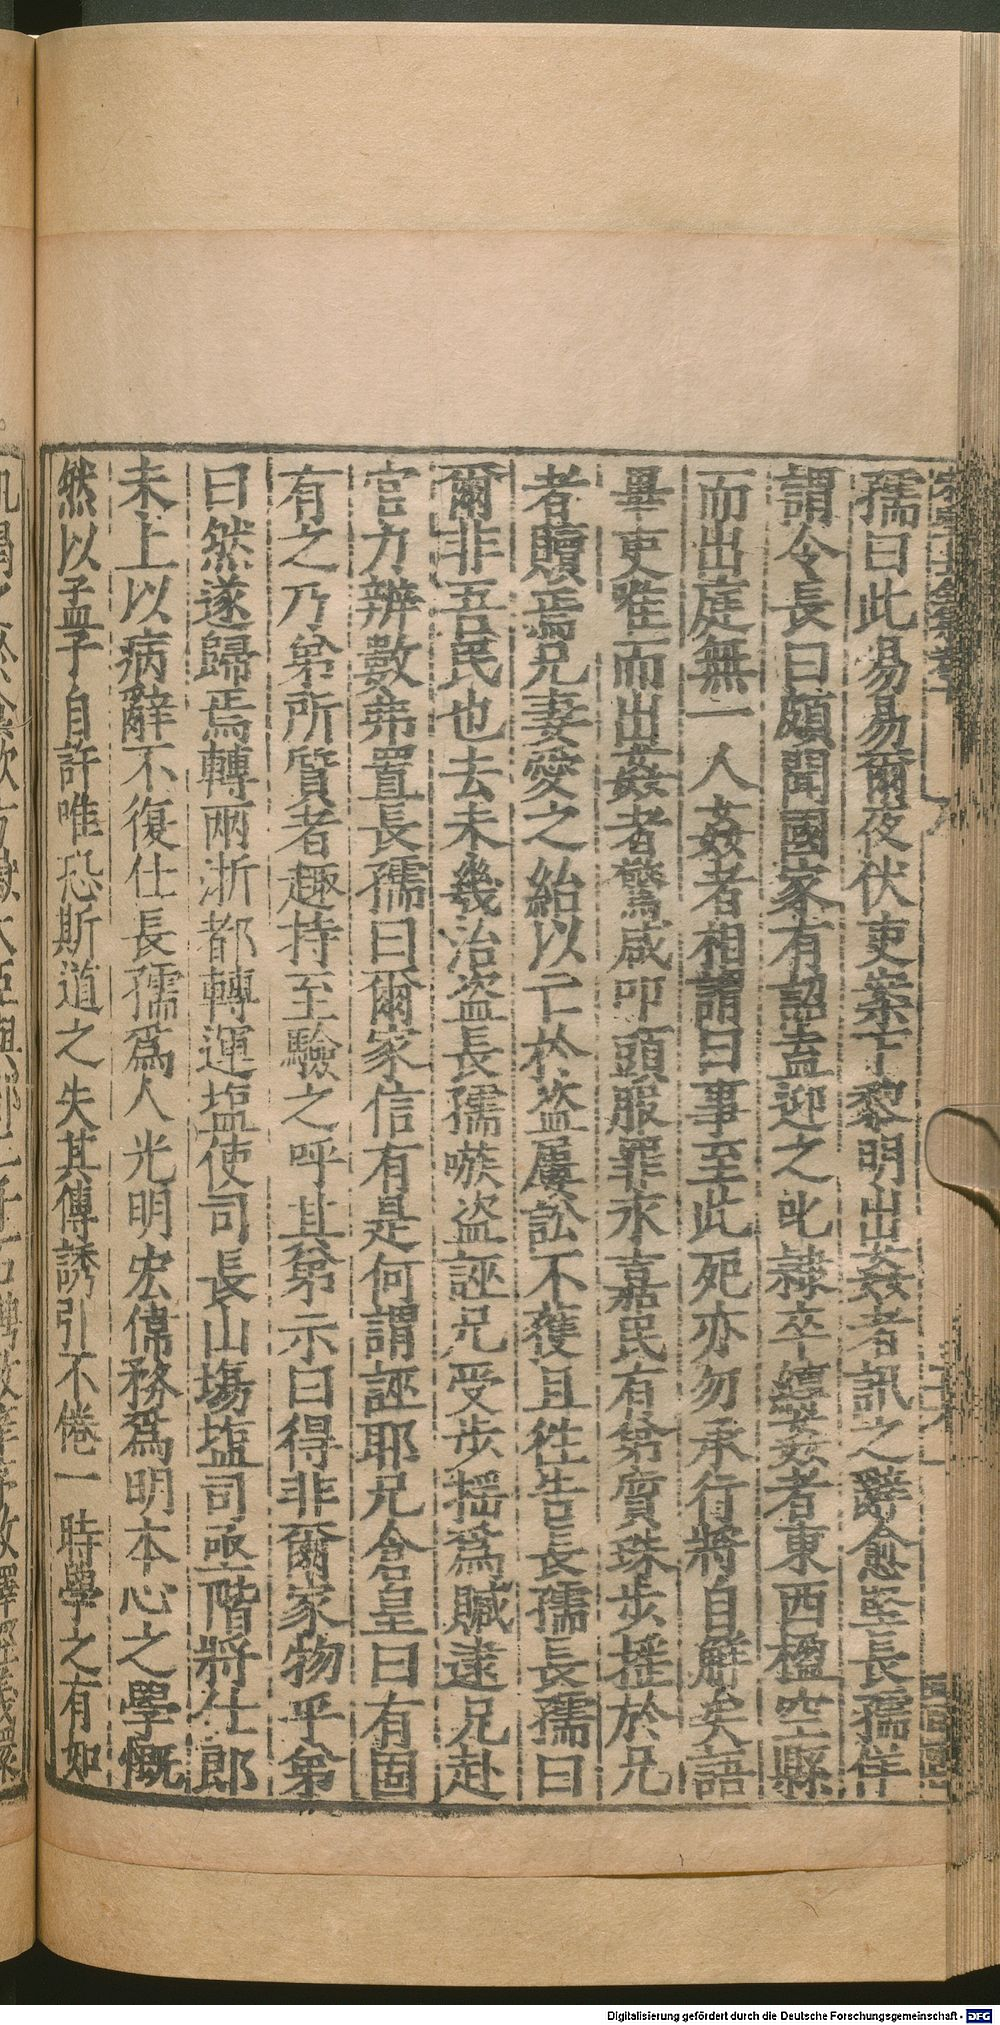 孺曰此易易爾夜伏吏案下黎明出姦者訊之辭愈堅長孺佯
謂令長曰頗聞國家有詔盍迎之叱隷卒縛姦者東西楹空縣
而出庭無一人姦者相謂曰事至此死亦勿承行將自觧矣語
畢吏嘩而出姦者驚咸叩頭服罪永嘉民有弟質珠步揺於兄
者贖焉兄妻愛之紿以亡於盗屢訟不獲且徃告長孺長孺曰
爾非吾民也去未幾治盗長孺嗾盗誣兄受步揺爲贓逮兄赴
官力辨數弗置長孺曰爾家信有是何謂誣耶兄倉皇曰有固
有之乃弟所質者趣持至驗之呼其弟示曰得非爾家物乎弟
曰然遂歸焉轉兩浙都轉運塩使司長山塲塩司丞階將仕郎
未上以病辭不復仕長孺爲人光明宏偉務爲明本心之學慨
然以孟子自許唯恐斯道之失其傳誘引不倦一時學之有如
Digitalisierung gefördert durch die Deutsche Forschungsgemeinschaft - DFG